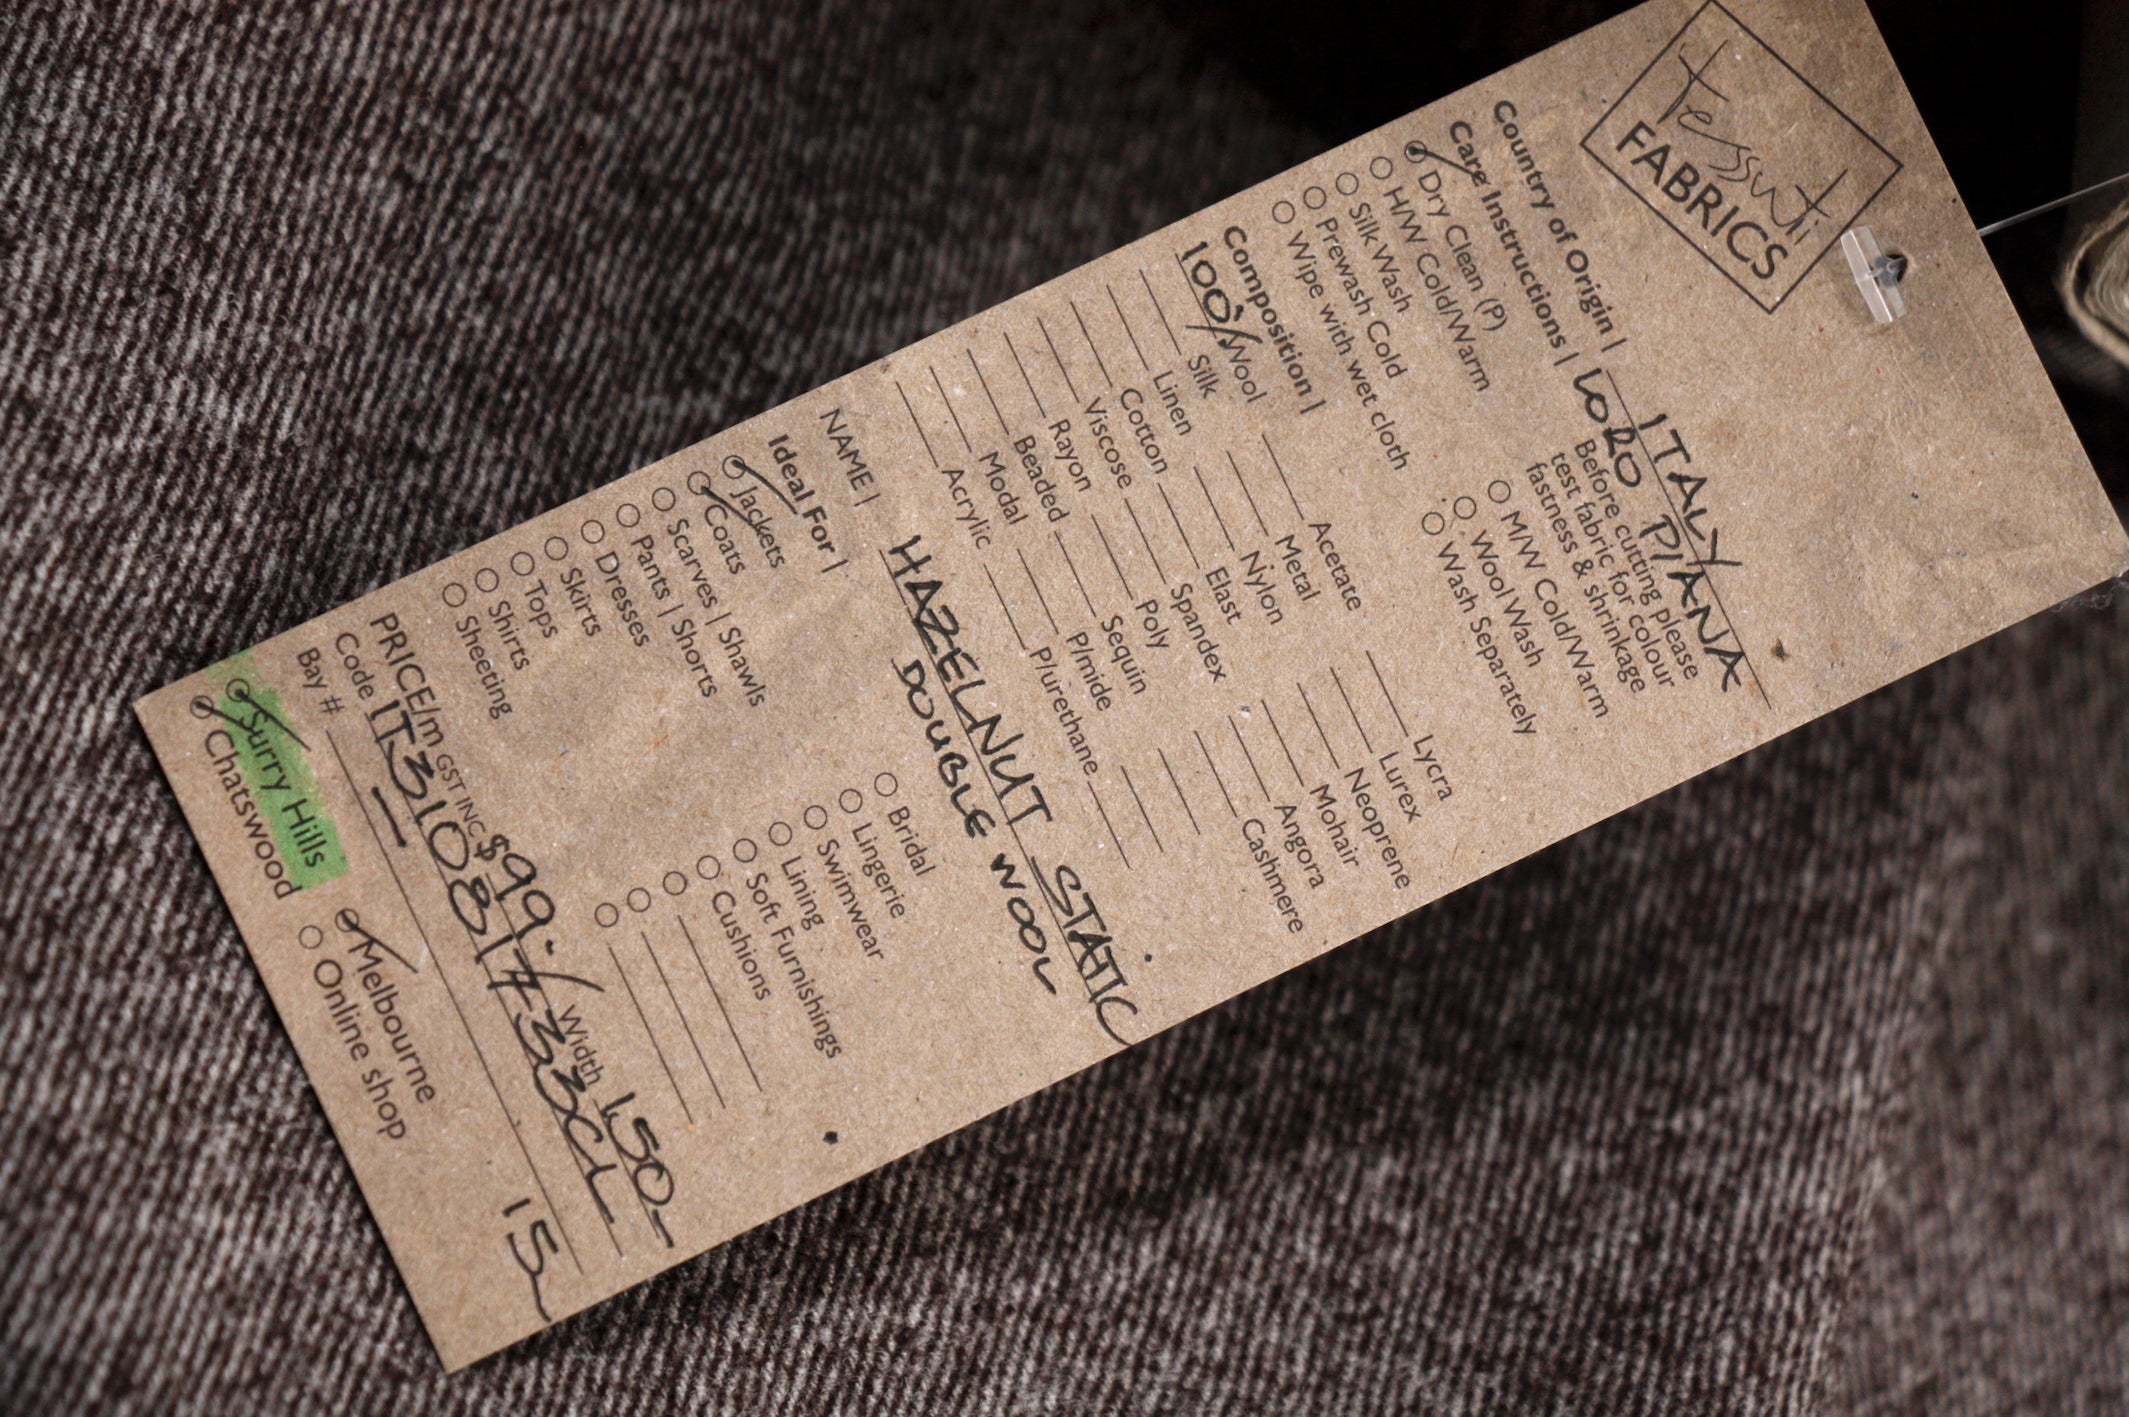 Tessuti
FABRICS
Country of Origin | ITALY
Care Instructions | LORO PIANA
Dry Clean (P)
H/W Cold/Warm
Silk Wash
Prewash Cold
Wipe with wet cloth
Before cutting please
test fabric for colour
fastness & shrinkage
M/W Cold/Warm
Wool Wash
Wash Separately
Composition |
100% Wool Acetate Lycra
Silk Metal Lurex
Linen Nylon Neoprene
Cotton Elast Mohair
Viscose Spandex Angora
Rayon Poly Cashmere
Beaded Sequin
Modal P/mide
Acrylic P/urethane
NAME | HAZELNUT STATIC
DOUBLE WOOL
Ideal For |
Jackets Bridal
Coats Lingerie
Scarves | Shawls Swimwear
Pants | Shorts Lining
Dresses Soft Furnishings
Skirts Cushions
Tops
Shirts
Sheeting
PRICE/m GST INC $99.- Width 150-
Code IT31081
Bay # 15
Surry Hills Melbourne
Chatswood Online shop